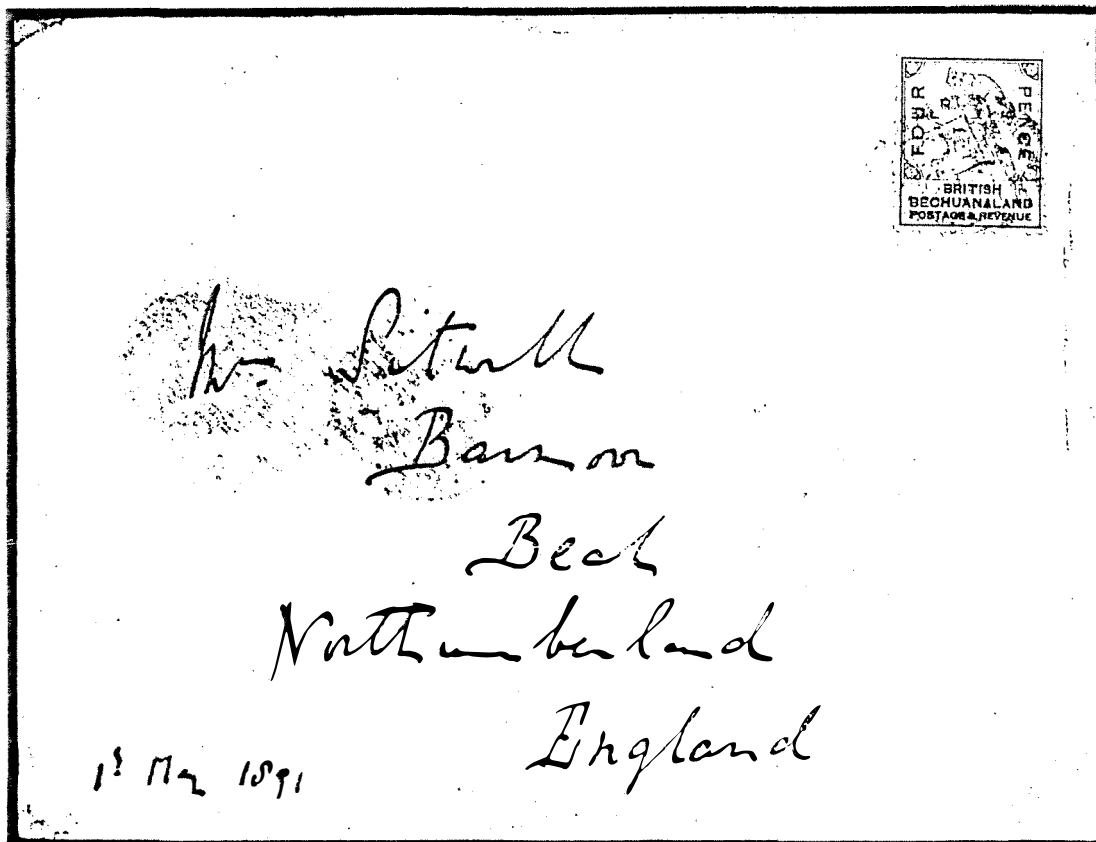 FOUR PENCE
BRITISH
BECHUANALAND
POSTAGE & REVENUE
Sitwell
Barmoor
Beal
Northumberland
England
1st May 1891